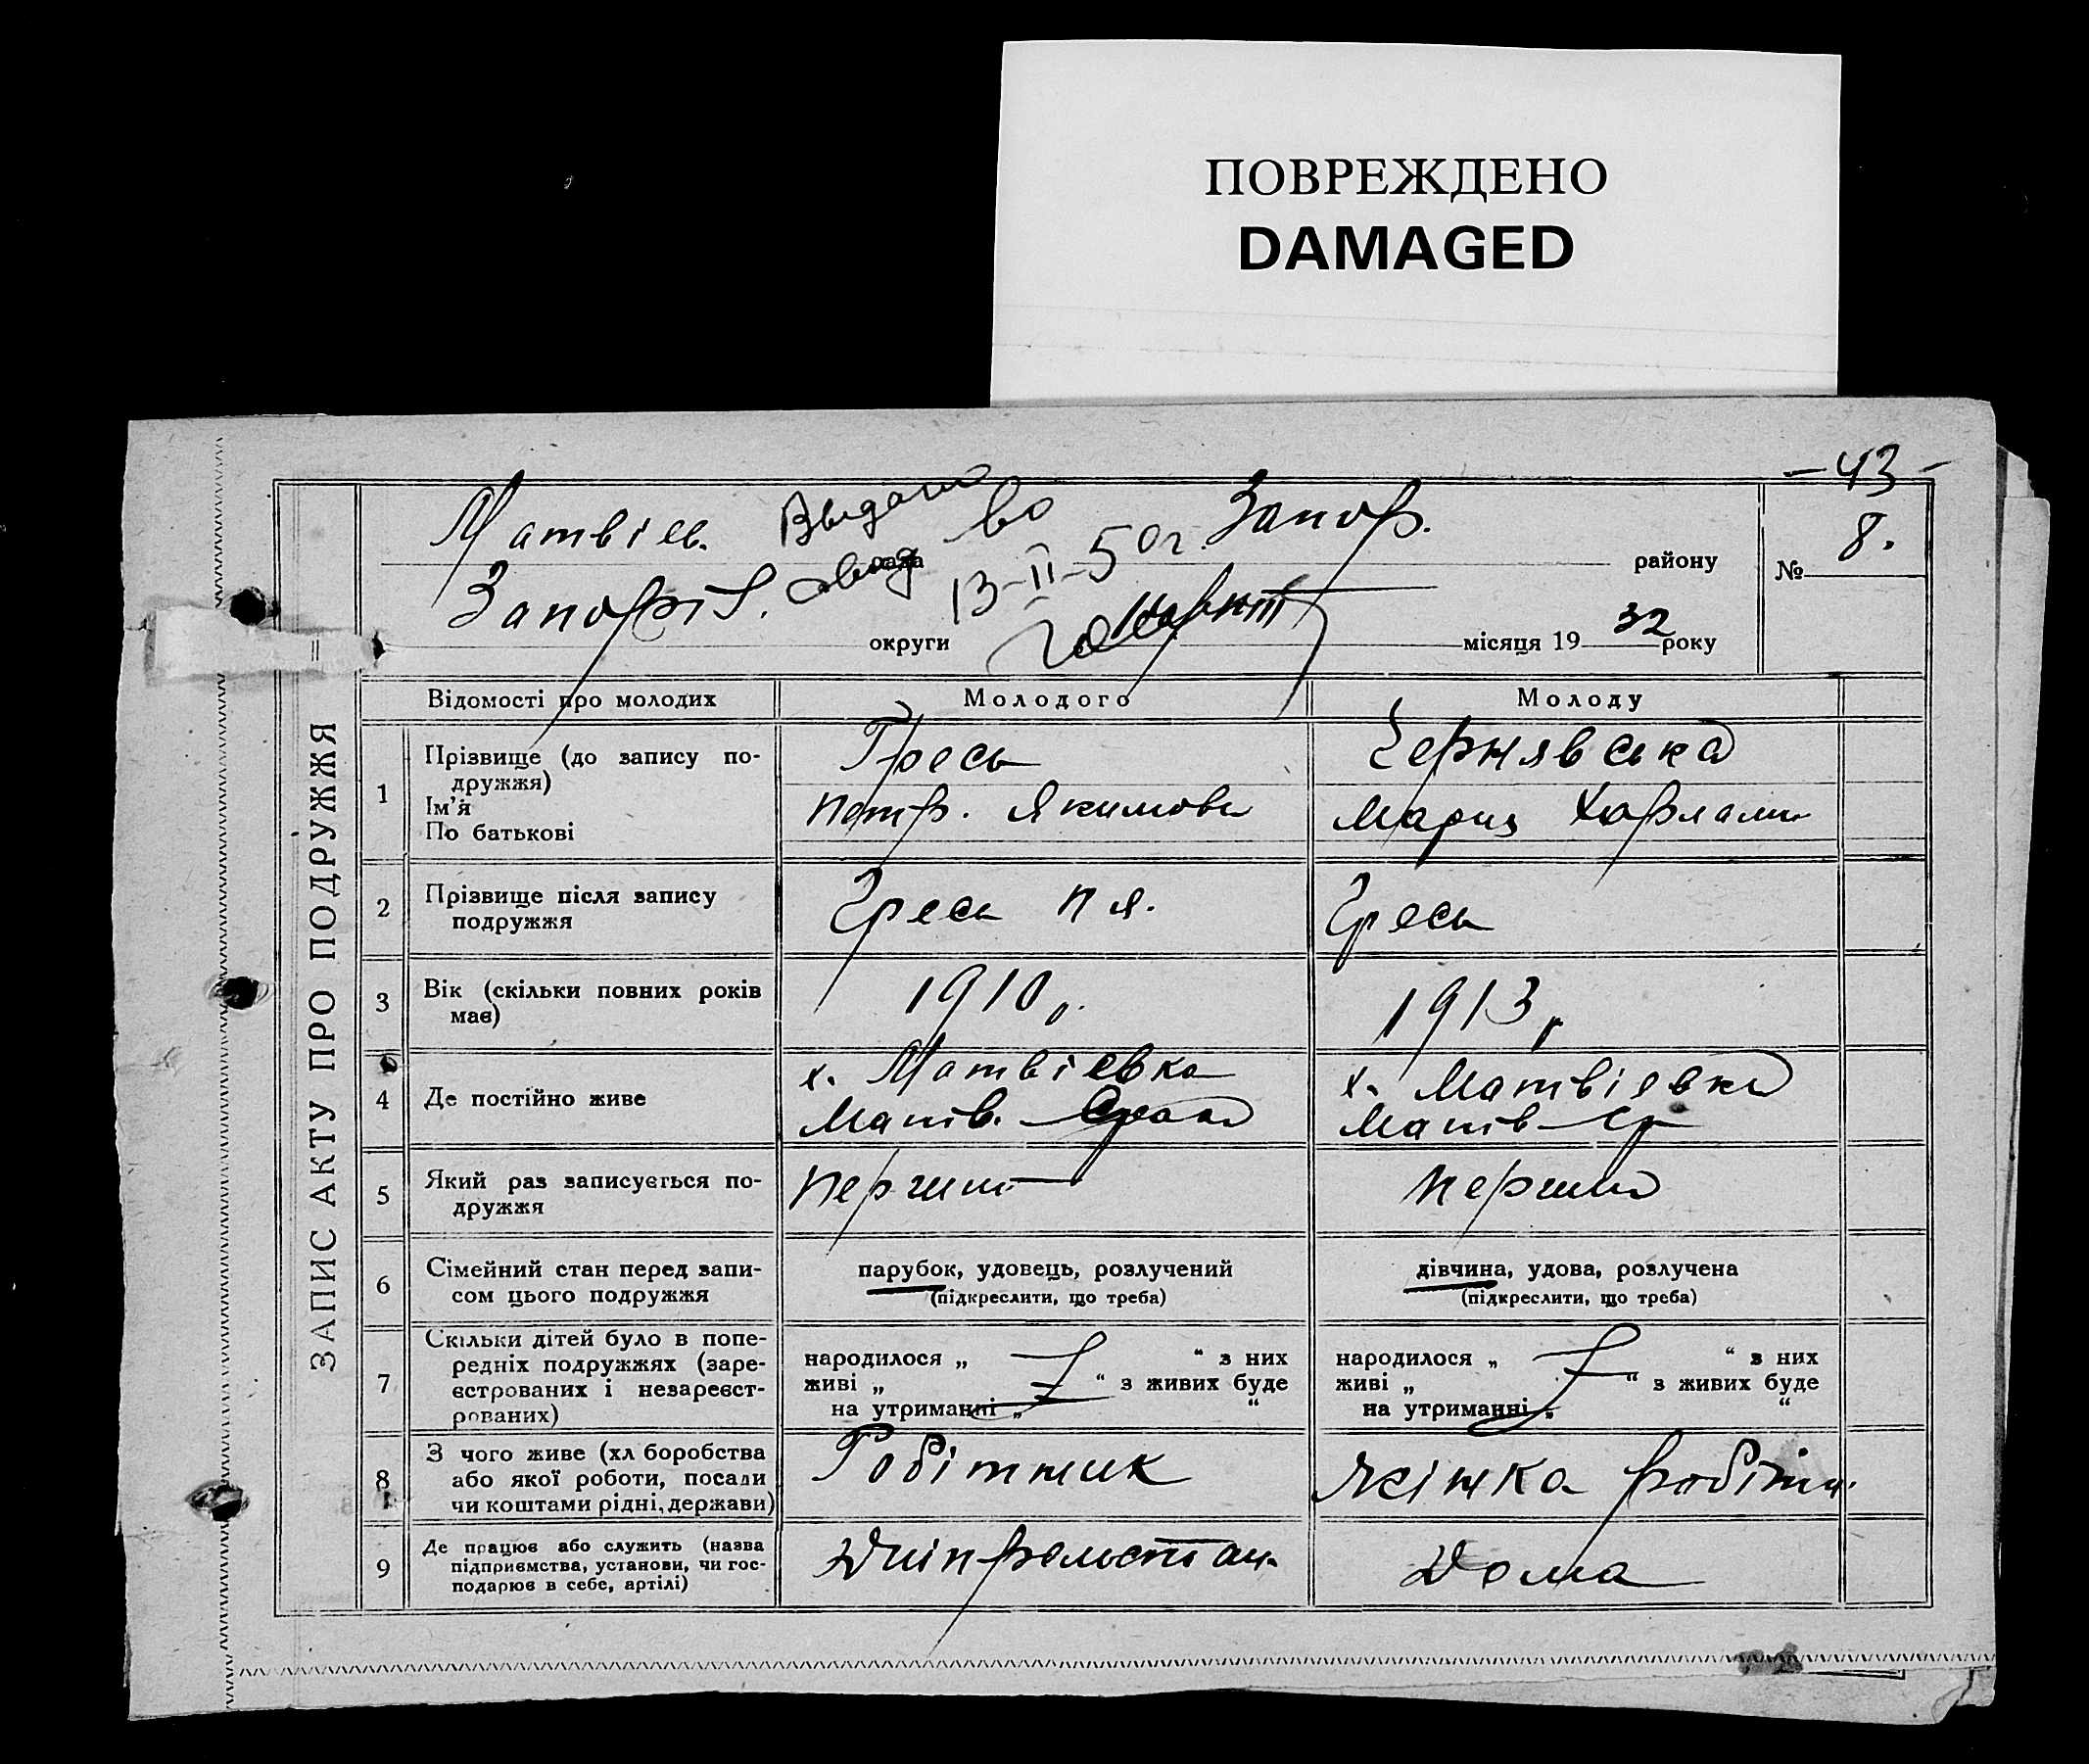 ПОВРЕЖДЕНО
DAMAGED
- 43 -
Матвіев. рада Запор. району № 8.
Выдано свид во 13-II-50 г.
Запоріз. округи місяця 1932 року
ЗАПИС АКТУ ПРО ПОДРУЖЖЯ
Відомості про молодих Молодого Молоду
1 Прізвище (до запису по-
дружжя)
Гресь Чернявська
Ім'я
По батькові
Петр. Якимови Мария Харлами
2 Прізвище після запису
подружжя
Гресь П Я. Гресь
3 Вік (скільки повних років
має)
1910 р. 1913 р
4 Де постійно живе
х. Матвіевка х. Матвіевка
Матв. Матв
5 Який раз записується по-
дружжя
Перший Перший
6 Сімейний стан перед запи-
сом цього подружжя
парубок, удовець, розлучений дівчина, удова, розлучена
(підкреслити, що треба) (підкреслити, що треба)
7 Скільки дітей було в попе-
редніх подружжях (заре-
єстрованих і незареєст-
рованих)
народилося „ “ з них народилося „ “ з них
живі „ “ з живих буде живі „ “ з живих буде
на утриманні „ “ на утриманні „ “
8 З чого живе (хл боробства
або якої роботи, посади
чи коштами рідні, держави)
Робітник Жінка робітн.
9 Де працює або служить (назва
підприємства, установи, чи гос-
подарює в себе, артілі)
Дніпрельстан Дома